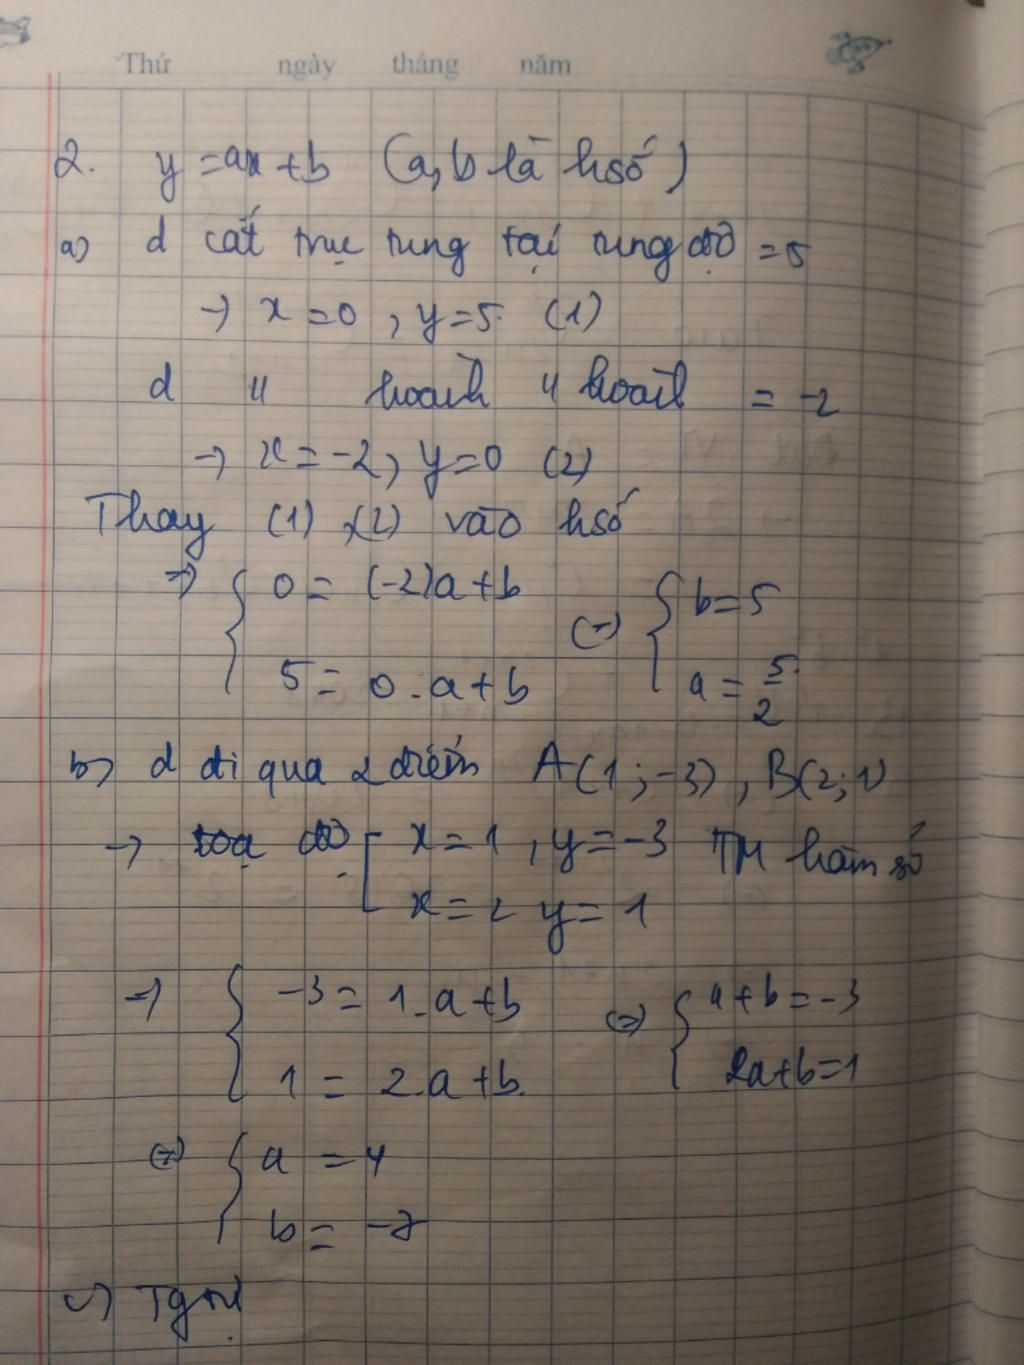 Thứ ngày tháng năm
2. y = ax + b (a, b là hsố)
a) d cắt trục tung tại tung độ = 5
→ x = 0, y = 5. (1)
d " hoành " hoành = -2
→ x = -2, y = 0 (2)
Thay (1), (2) vào hsố
=> { 0 = (-2)a + b <=> { b = 5
5 = 0.a + b a = 5/2
b) d đi qua 2 điểm A(1; -3), B(2; 1)
→ toạ độ [ x = 1, y = -3 TM hàm số
x = 2 y = 1
=> { -3 = 1.a + b <=> { a + b = -3
1 = 2.a + b. 2a + b = 1
<=> { a = 4
b = -7
c) Tgtự